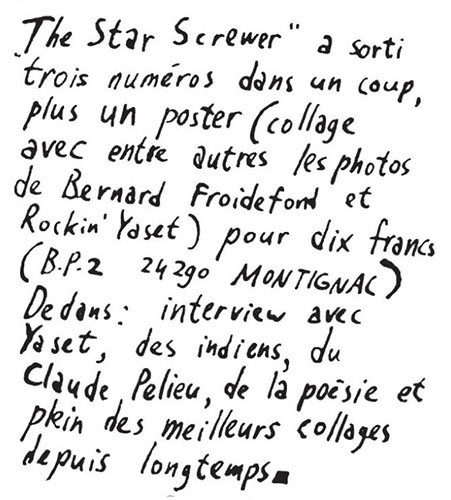 "The Star Screwer" a sorti
trois numéros dans un coup,
plus un poster (collage
avec entre autres les photos
de Bernard Froidefond et
Rockin' Yaset) pour dix francs
(B.P.2 24290 MONTIGNAC)
Dedans: interview avec
Yaset, des indiens, du
Claude Pelieu, de la poèsie et
plein des meilleurs collages
depuis longtemps.